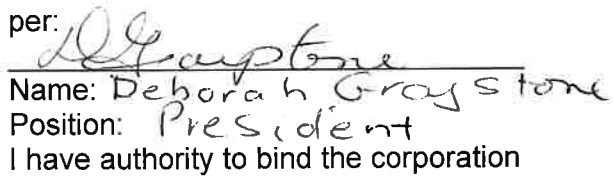 per:
DGraystone
Name: Deborah Graystone
Position: President
I have authority to bind the corporation